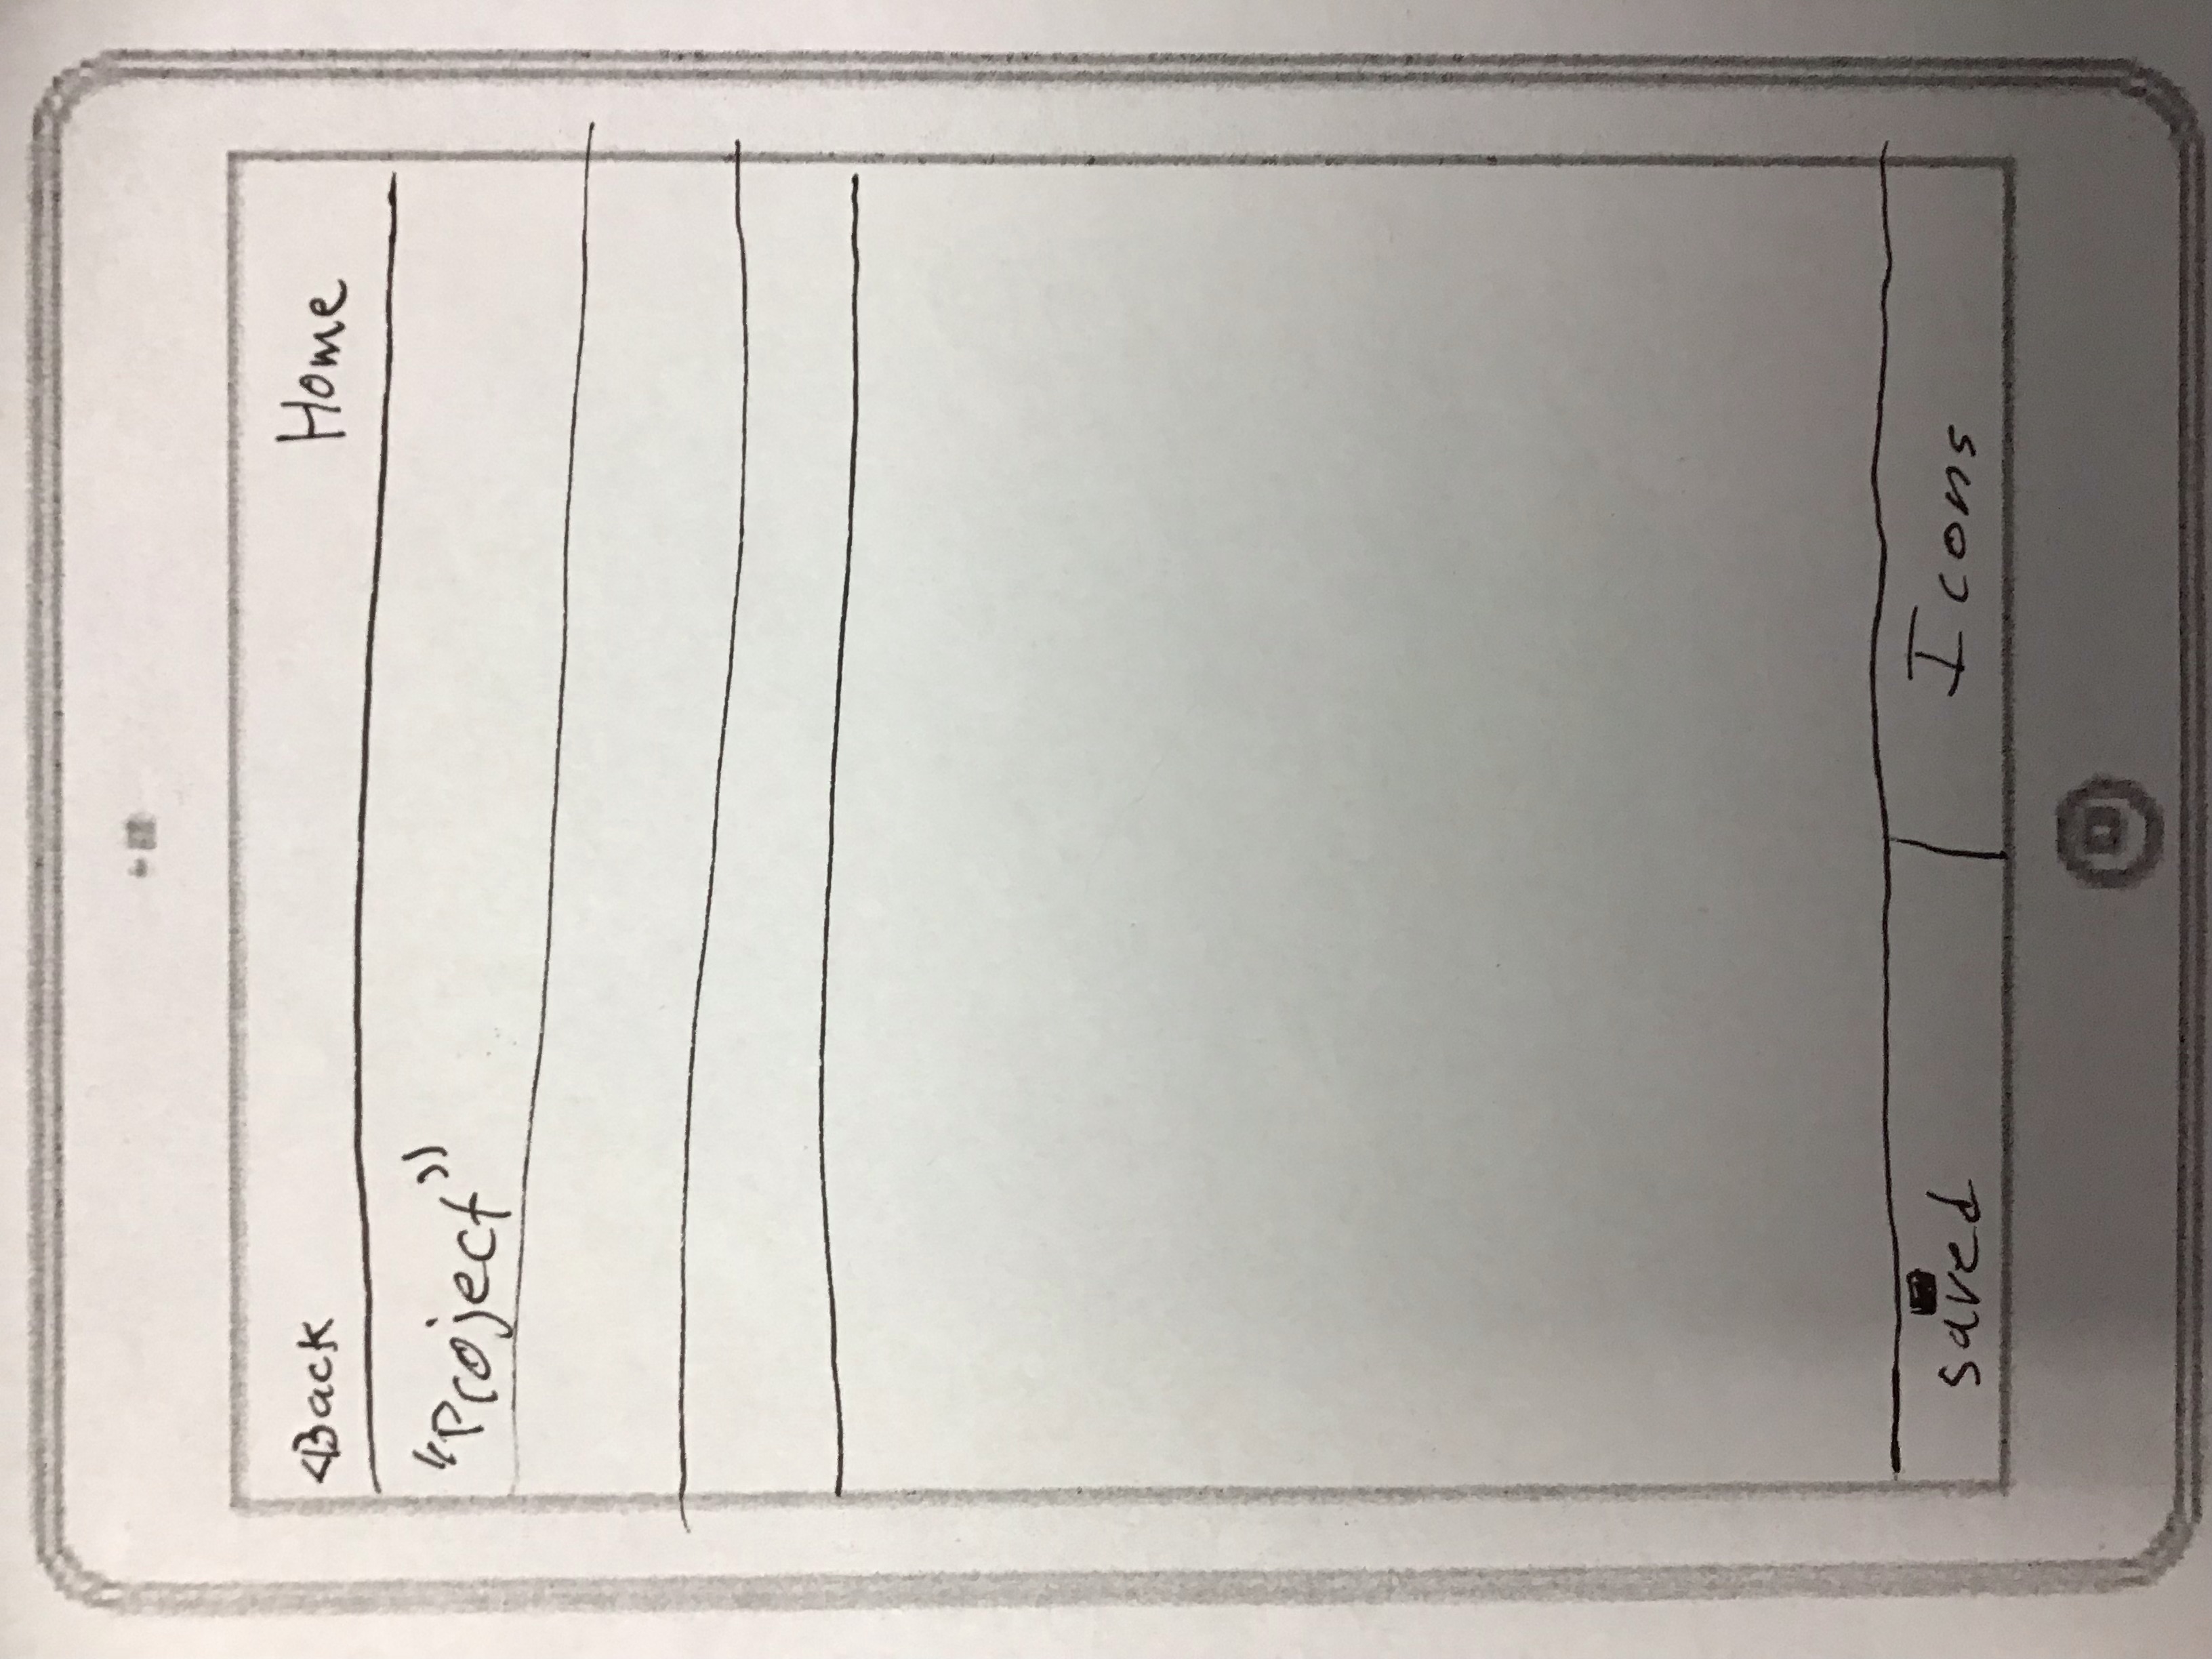 <Back Home
"Project"
saved Icons